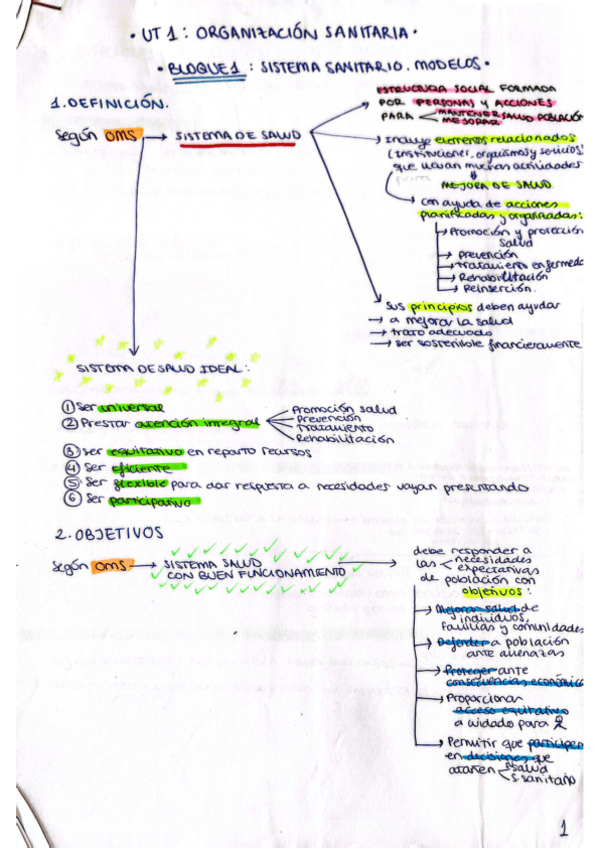 • UT 1: ORGANIZACIÓN SANITARIA •
• BLOQUE 1: SISTEMA SANITARIO. MODELOS •
1. DEFINICIÓN.
Según OMS → SISTEMA DE SALUD
ESTRUCTURA SOCIAL FORMADA
POR PERSONAS Y ACCIONES
PARA
MANTENER
MEJORAR
SALUD POBLACIÓN
→ Incluye elementos relacionados
(Instituciones, organismos y servicios)
que llevan muchas actividades
para
MEJORA DE SALUD
con ayuda de acciones
planificadas y organizadas:
→ Promoción y protección
salud
→ Prevención
→ Tratamiento enfermeda
→ Rehabilitación
→ Reinserción.
Sus principios deben ayudar
→ a mejorar la salud
→ trato adecuado
→ ser sostenible financieramente
SISTEMA DE SALUD IDEAL:
① Ser universal
② Prestar atención integral
Promoción salud
Prevención
Tratamiento
Rehabilitación
③ Ser equitativo en reparto recursos
④ Ser eficiente
⑤ Ser flexible para dar respuesta a necesidades vayan presentando
⑥ Ser participativo
2. OBJETIVOS
Según OMS → SISTEMA SALUD
CON BUEN FUNCIONAMIENTO
debe responder a
las
necesidades
expectativas
de población con
objetivos:
→ Mejorar salud de
individuos,
familias y comunidades
→ Defender a población
ante amenazas
→ Proteger ante
consecuencias económica
→ Proporcionar
acceso equitativo
a cuidado para
→ Permitir que participen
en decisiones que
atañen
salud
S. sanitario
1